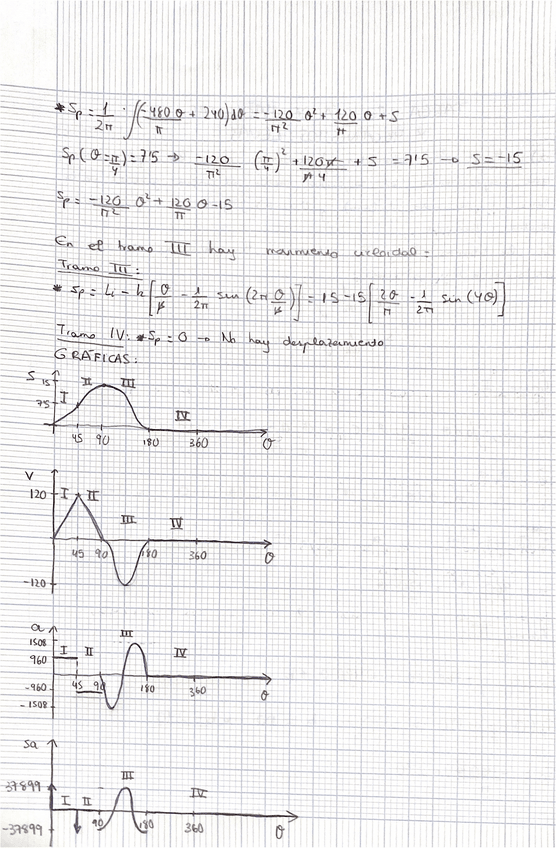 * Sp = 1/2π · ∫(-480/π θ + 240)dθ = -120/π² θ² + 120/π θ + S
Sp(θ=π/4) = 7'5 → -120/π² (π/4)² + 120π/π4 + S = 7'5 → S = -15
Sp = -120/π² θ² + 120/π θ - 15
En el tramo III hay movimiento cicloidal:
Tramo III:
* Sp = Li - h [θ/β - 1/2π sen (2π θ/β)] = 15 - 15 [2θ/π - 1/2π sen (4θ)]
Tramo IV: * Sp = 0 → No hay desplazamiento
GRÁFICAS:
S
II III
15
I
7'5
IV
45 90 180 360 θ
V
120 I II
III IV
45 90 180 360 θ
-120
a
III
1508
I II IV
960
45 90 180 360 θ
-960
-1508
Sa
III
37899
I II IV
90 180 360 θ
-37899